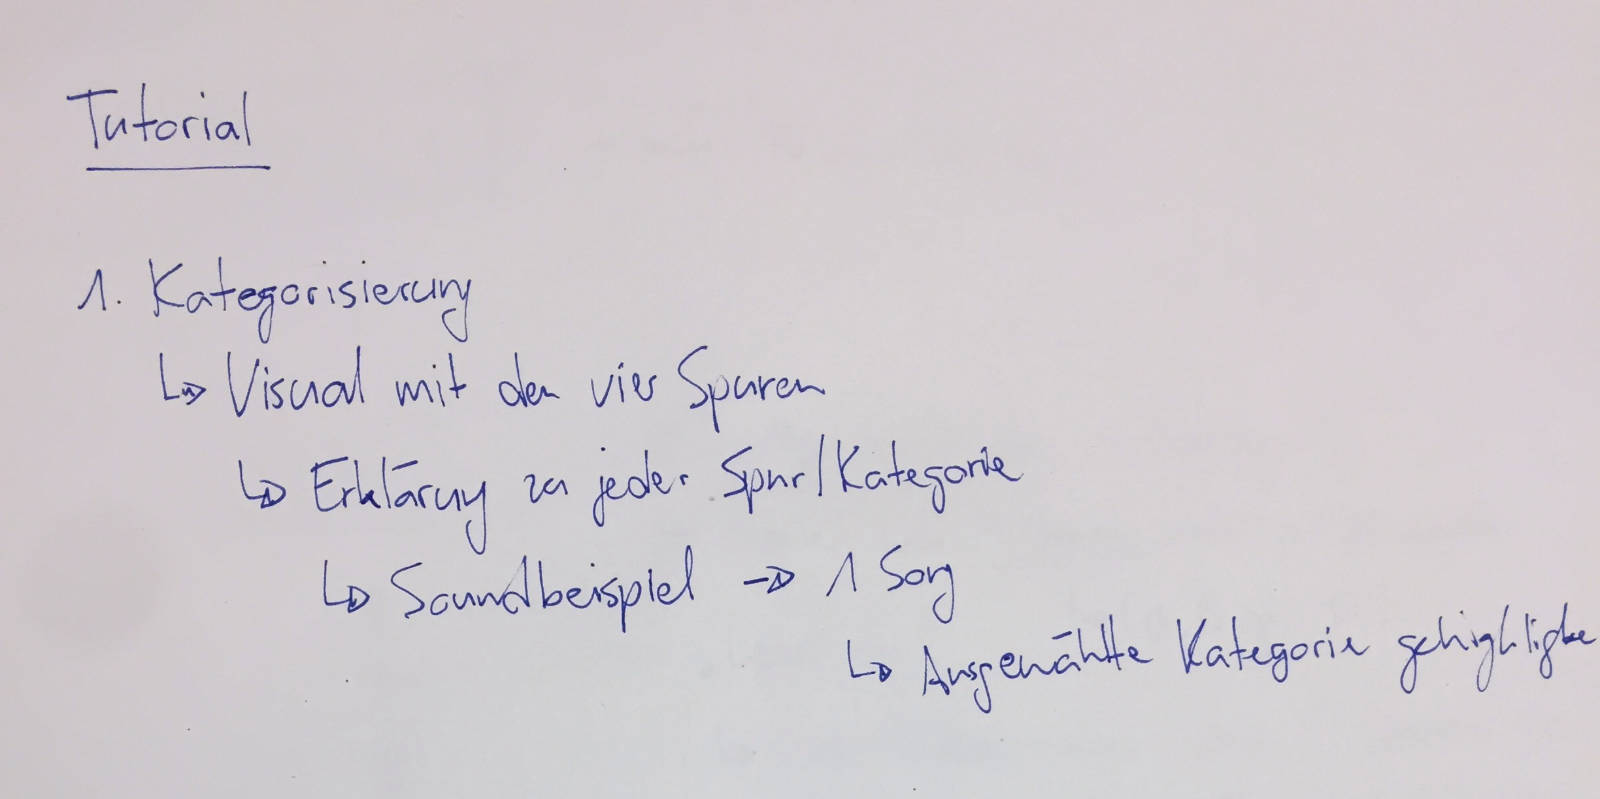 Tutorial
1. Kategorisierung
↳ Visual mit den vier Spuren
↳ Erklärung zu jeder Spur/Kategorie
↳ Soundbeispiel → 1 Song
↳ Ausgewählte Kategorie